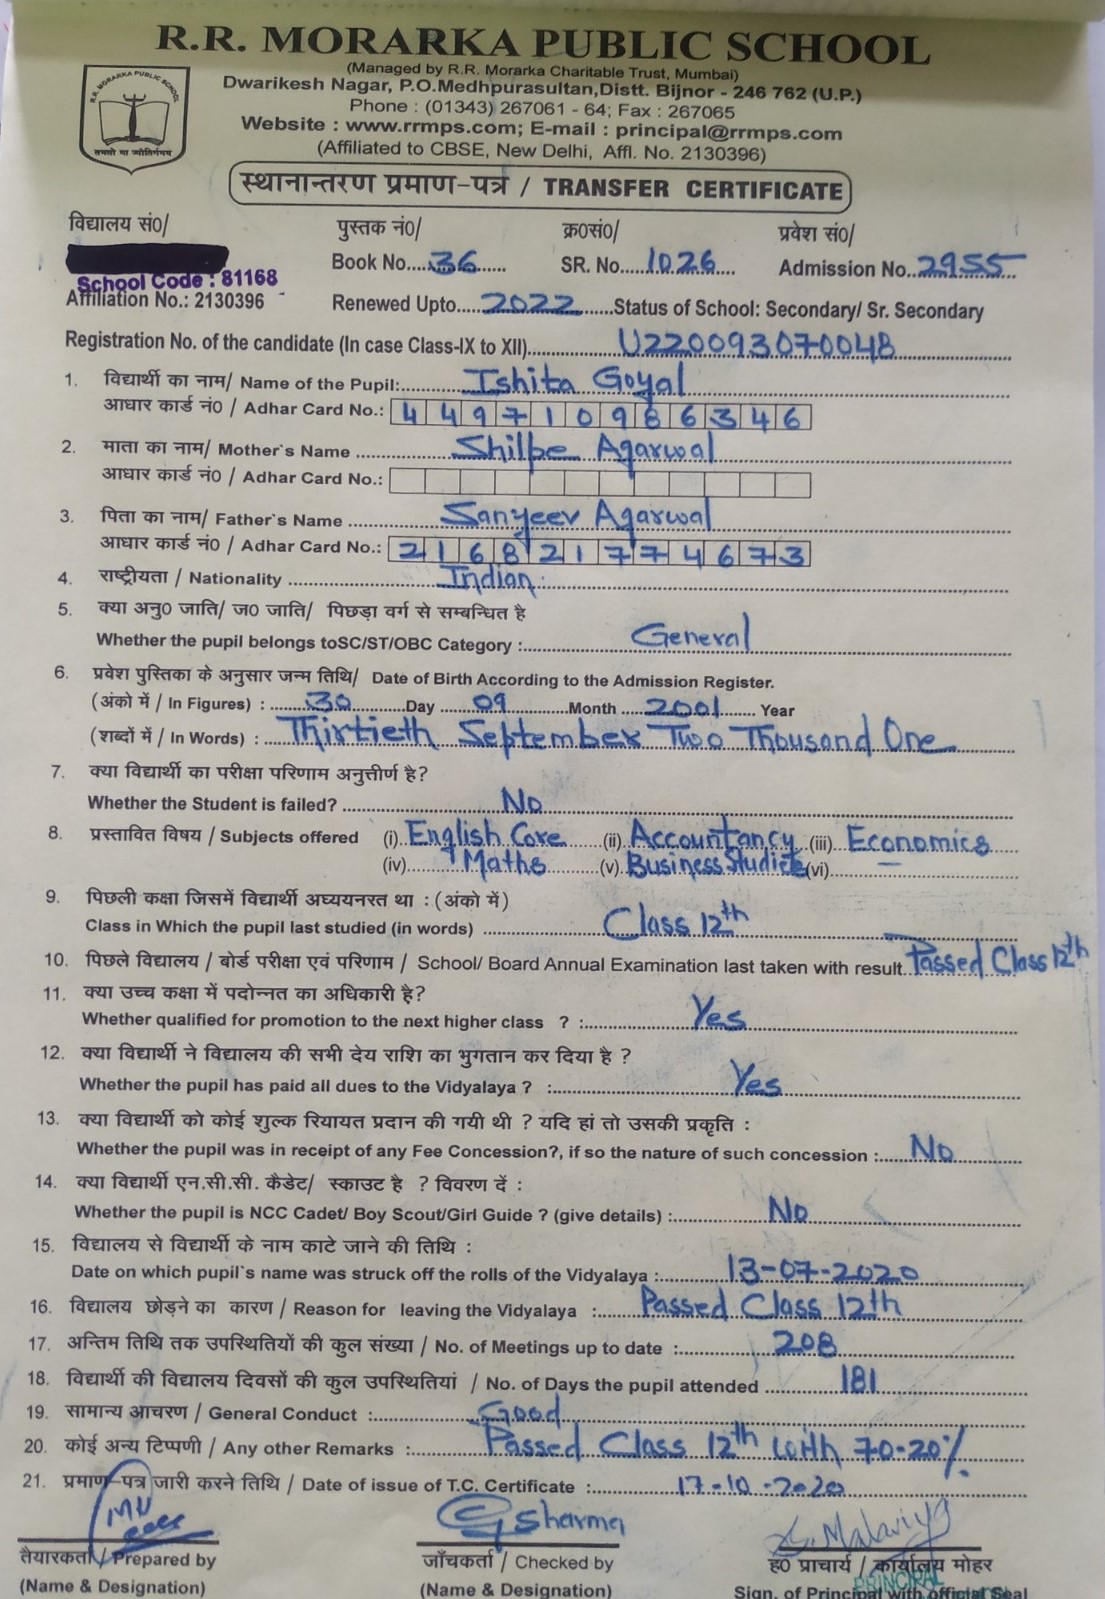 R.R. MORARKA PUBLIC SCHOOL
(Managed by R.R. Morarka Charitable Trust, Mumbai)
Dwarikesh Nagar, P.O.Medhpurasultan,Distt. Bijnor - 246 762 (U.P.)
Phone : (01343) 267061 - 64; Fax : 267065
Website : www.rrmps.com; E-mail : principal@rrmps.com
(Affiliated to CBSE, New Delhi, Affl. No. 2130396)
R.R. MORARKA PUBLIC SCHOOL
तमसो मा ज्योतिर्गमय
स्थानान्तरण प्रमाण-पत्र / TRANSFER CERTIFICATE
विद्यालय सं0/ पुस्तक नं0/ क्र0सं0/ प्रवेश सं0/
Book No. 36 SR. No. 1026 Admission No. 2955
School Code : 81168
Affiliation No.: 2130396 Renewed Upto 2022 Status of School: Secondary/ Sr. Secondary
Registration No. of the candidate (In case Class-IX to XII) U220093070048
1. विद्यार्थी का नाम/ Name of the Pupil: Ishita Goyal
आधार कार्ड नं0 / Adhar Card No.: 449710986346
2. माता का नाम/ Mother`s Name Shilpe Agarwal
आधार कार्ड नं0 / Adhar Card No.:
3. पिता का नाम/ Father`s Name Sanjeev Agarwal
आधार कार्ड नं0 / Adhar Card No.: 216821774673
4. राष्ट्रीयता / Nationality Indian
5. क्या अनु0 जाति/ ज0 जाति/ पिछड़ा वर्ग से सम्बन्धित है
Whether the pupil belongs toSC/ST/OBC Category : General
6. प्रवेश पुस्तिका के अनुसार जन्म तिथि/ Date of Birth According to the Admission Register.
(अंको में / In Figures) : 30 Day 09 Month 2001 Year
(शब्दों में / In Words) : Thirtieth September Two Thousand One
7. क्या विद्यार्थी का परीक्षा परिणाम अनुत्तीर्ण है?
Whether the Student is failed? No
8. प्रस्तावित विषय / Subjects offered (i) English Core (ii) Accountancy (iii) Economics
(iv) Maths (v) Business Studies (vi) —
9. पिछली कक्षा जिसमें विद्यार्थी अघ्ययनरत था : (अंको में)
Class in Which the pupil last studied (in words) Class 12th
10. पिछले विद्यालय / बोर्ड परीक्षा एवं परिणाम / School/ Board Annual Examination last taken with result Passed Class 12th
11. क्या उच्च कक्षा में पदोन्नत का अधिकारी है?
Whether qualified for promotion to the next higher class ? : Yes
12. क्या विद्यार्थी ने विद्यालय की सभी देय राशि का भुगतान कर दिया है ?
Whether the pupil has paid all dues to the Vidyalaya ? : Yes
13. क्या विद्यार्थी को कोई शुल्क रियायत प्रदान की गयी थी ? यदि हां तो उसकी प्रकृति :
Whether the pupil was in receipt of any Fee Concession?, if so the nature of such concession : No
14. क्या विद्यार्थी एन.सी.सी. कैडेट/ स्काउट है ? विवरण दें :
Whether the pupil is NCC Cadet/ Boy Scout/Girl Guide ? (give details) : No
15. विद्यालय से विद्यार्थी के नाम काटे जाने की तिथि :
Date on which pupil`s name was struck off the rolls of the Vidyalaya : 13-07-2020
16. विद्यालय छोड़ने का कारण / Reason for leaving the Vidyalaya : Passed Class 12th
17. अन्तिम तिथि तक उपस्थितियों की कुल संख्या / No. of Meetings up to date : 208
18. विद्यार्थी की विद्यालय दिवसों की कुल उपस्थितियां / No. of Days the pupil attended 181
19. सामान्य आचरण / General Conduct : Good
20. कोई अन्य टिप्पणी / Any other Remarks : Passed Class 12th with 70.20%
21. प्रमाण-पत्र जारी करने तिथि / Date of issue of T.C. Certificate : 17-10-2020
G Sharma S. Malaviya
तैयारकर्ता / Prepared by जाँचकर्ता / Checked by ह0 प्राचार्य / कार्यालय मोहर
PRINCIPAL
(Name & Designation) (Name & Designation) Sign. of Principal with official Seal